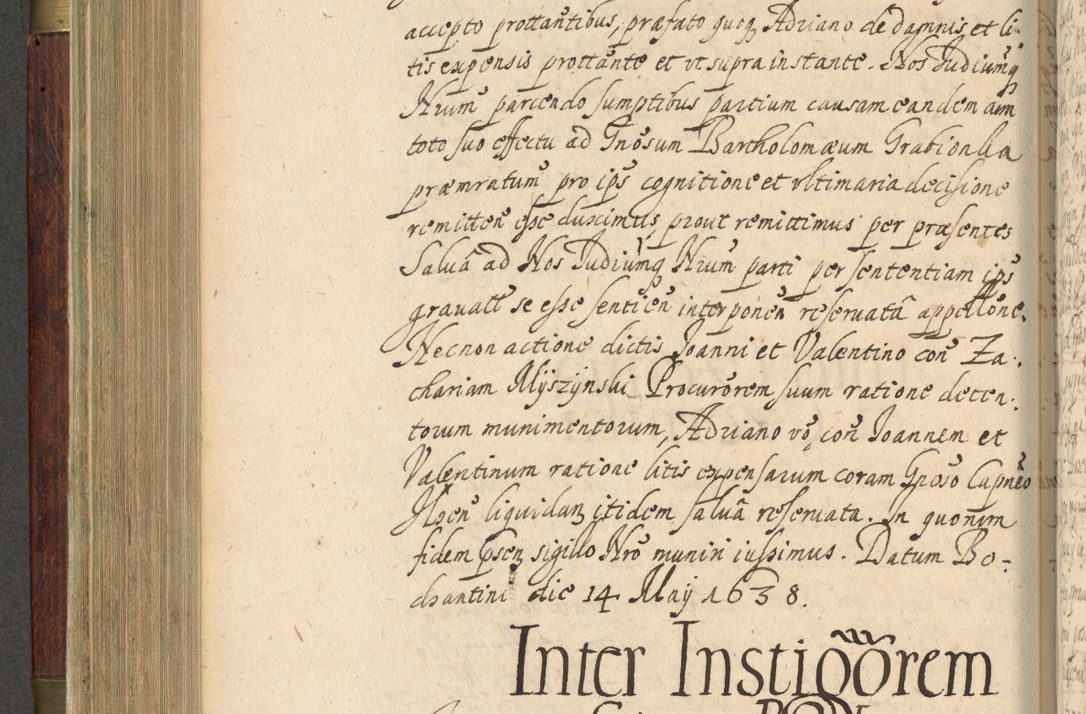 accepto prottantibus, præfato quoq Adriano de damnis et li-
tis expensis prottante et vt supra instante. Nos Iudiumq
Nrum parcendo sumptibus partium causam eandem cum
toto suo effectu ad Gnosum Bartholomæum
præmratum pro ips cognitione et vltimaria decisione
remitten esse duximus, prout remittimus per præsentes
Salua ad Nos Iudiumq Nrum parti per sententiam ips
grauatt se esse sentien interponen reseruata appellone.
Necnon actione dictis Joanni et Valentino con Za-
chariam Myszynski Procurorem suum ratione deten-
torum munimentorum, Adriano vo con Joannem et
Valentinum ratione litis expensarum coram Gnoso Capneo
liquidan itidem salua reseruata. In quorum
fidem psen sigillo Nro muniri iussimus. Datum Bo-
chantini die 14 May 1638.
Inter Instigorem